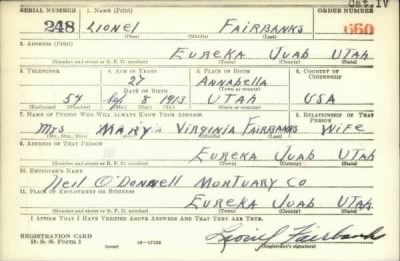 Cat. IV
SERIAL NUMBER 1. NAME (Print) ORDER NUMBER
248 LIONEL FAIRBANKS 660
(First) (Middle) (Last)
2. ADDRESS (Print)
EUREKA JUAB UTAH
(Number and street or R. F. D. number) (Town) (County) (State)
3. TELEPHONE 4. AGE IN YEARS 5. PLACE OF BIRTH 6. COUNTRY OF CITIZENSHIP
27 ANNABELLA
DATE OF BIRTH
54 8 1913 UTAH USA
(Exchange) (Number) (Mo.) (Day) (Yr.) (State or country)
7. NAME OF PERSON WHO WILL ALWAYS KNOW YOUR ADDRESS 8. RELATIONSHIP OF THAT PERSON
MRS MARY VIRGINIA FAIRBANKS WIFE
(Mr., Mrs., Miss) (First) (Middle) (Last)
9. ADDRESS OF THAT PERSON
EUREKA JUAB UTAH
(Number and street or R. F. D. number) (Town) (County) (State)
10. EMPLOYER'S NAME
Neil O'DONNELL MORTUARY CO
11. PLACE OF EMPLOYMENT OR BUSINESS
EUREKA JUAB UTAH
(Number and street or R. F. D. number) (Town) (County) (State)
I AFFIRM THAT I HAVE VERIFIED ABOVE ANSWERS AND THAT THEY ARE TRUE.
REGISTRATION CARD
D. S. S. Form 1 (over) 16—17105 Lionel Fairbanks
(Registrant's signature)